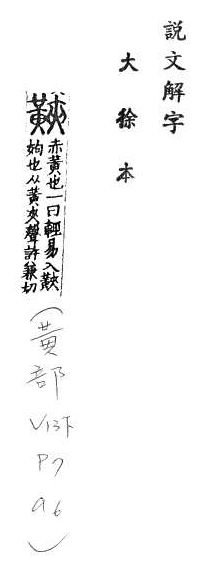 説文解字
大徐本
䵌
赤黃也一曰輕易人䵌
姁也从黃夾聲許兼切
(黃部
V13下
P7
a6)